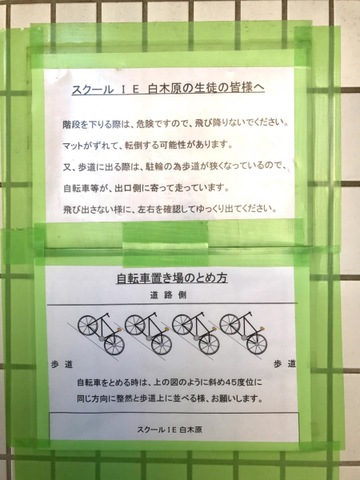 スクール IE 白木原の生徒の皆様へ
階段を下りる際は、危険ですので、飛び降りないでください。
マットがずれて、転倒する可能性があります。
又、歩道に出る際は、駐輪の為歩道が狭くなっているので、
自転車等が、出口側に寄って走っています。
飛び出さない様に、左右を確認してゆっくり出てください。
自転車置き場のとめ方
道路側
歩道 歩道
自転車をとめる時は、上の図のように斜め45度位に
同じ方向に整然と歩道上に並べる様、お願いします。
スクールIE 白木原